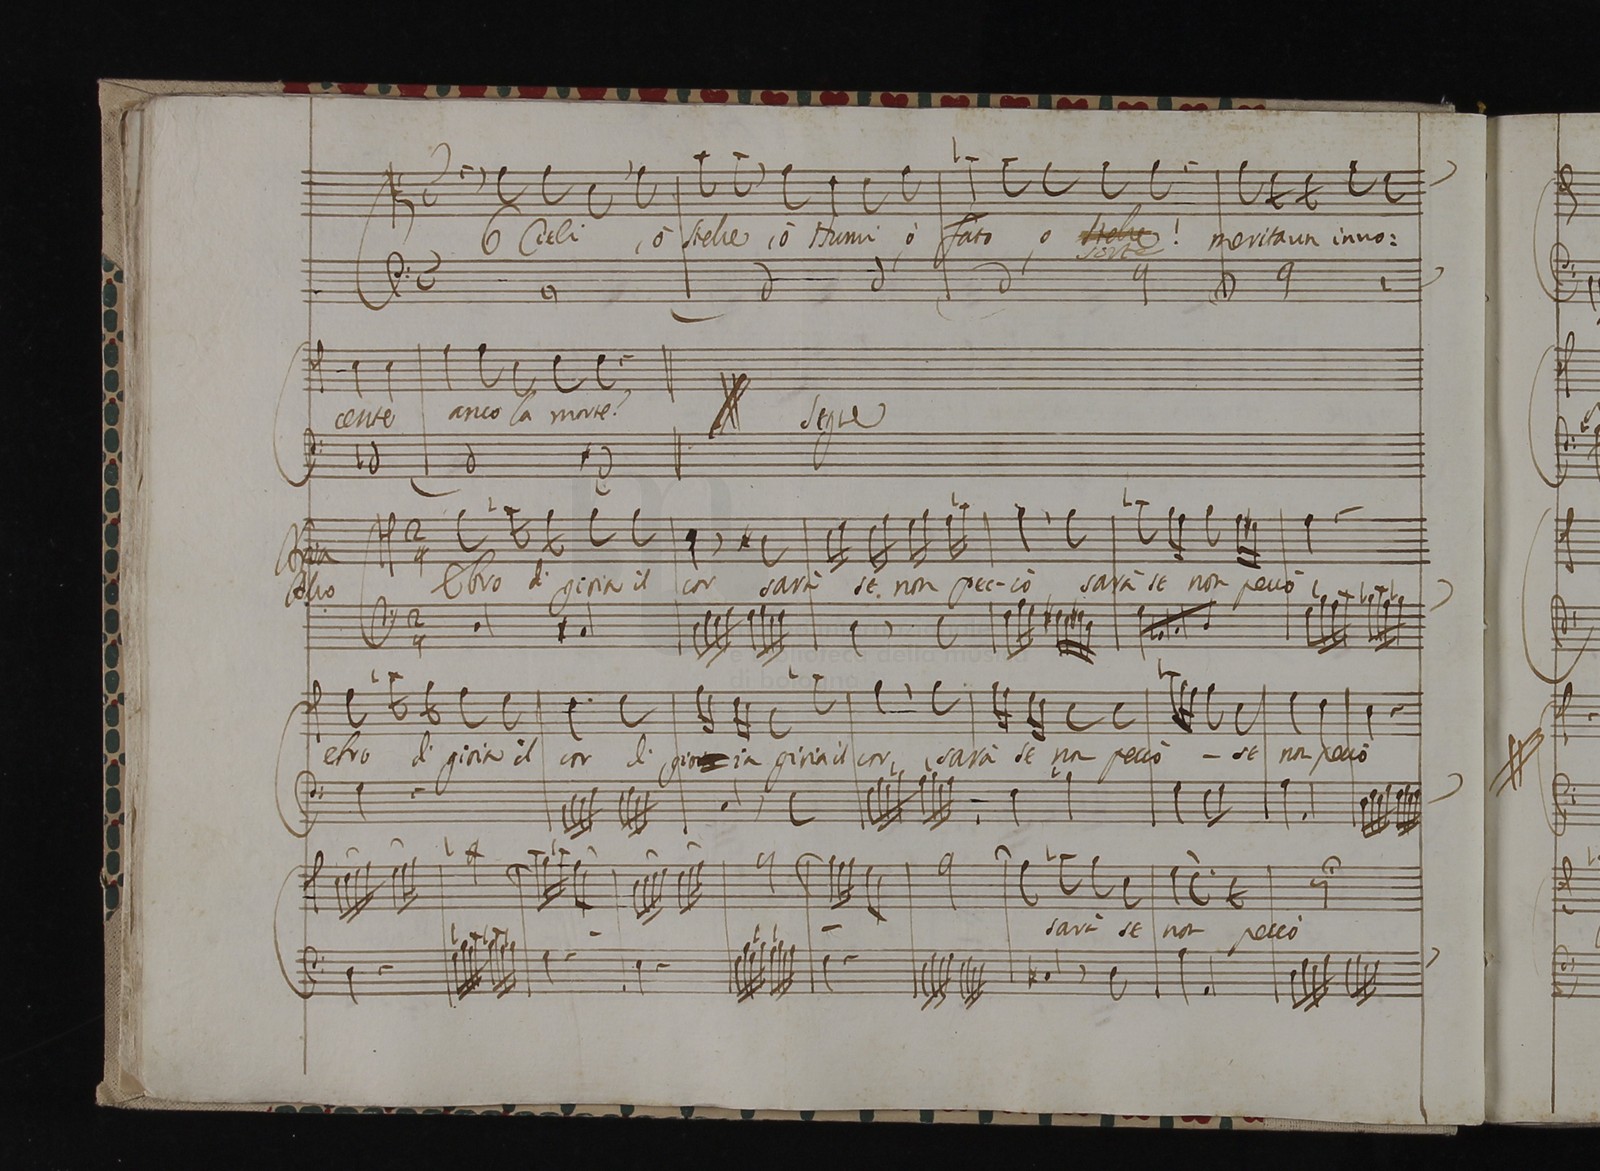 O Cieli, ò stelle, ò Numi ò fato o stelle! meritava inno=
sorte
cente anco la morte?
Segue
Aria
2 4
Ebro di gioia il cor sarà se non peccò sarà se non peccò
2 4
e biblioteca della musica
di bologna
ebro di gioia il cor di gioia gioia il cor, sarà se non peccò - se non peccò
sarà se non peccò